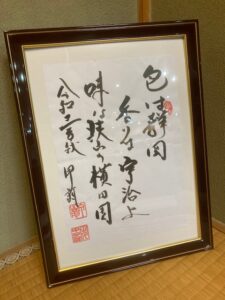 色は静岡
香りは宇治よ
味は狭山の横田園
令和